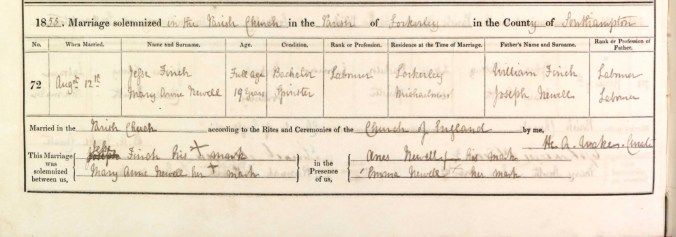 1855. Marriage solemnized in the Parish Church in the Parish of Lockerley in the County of Southampton
No. When Married. Name and Surname. Age. Condition. Rank or Profession. Residence at the Time of Marriage. Father's Name and Surname. Rank or Profession of Father.
72 Augt 12th Jesse Finch Full age Bachelor Labourer Lockerley William Finch Labourer
Mary Anne Newell 19 Years Spinster Michelmersh Joseph Newell Labourer
Married in the Parish Church according to the Rites and Ceremonies of the Church of England by me,
H. A.
This Marriage was solemnized between us,
Jesse Finch his X mark
Mary Anne Newell her X mark
in the Presence of us,
Newell his mark
Emma Newell X her mark